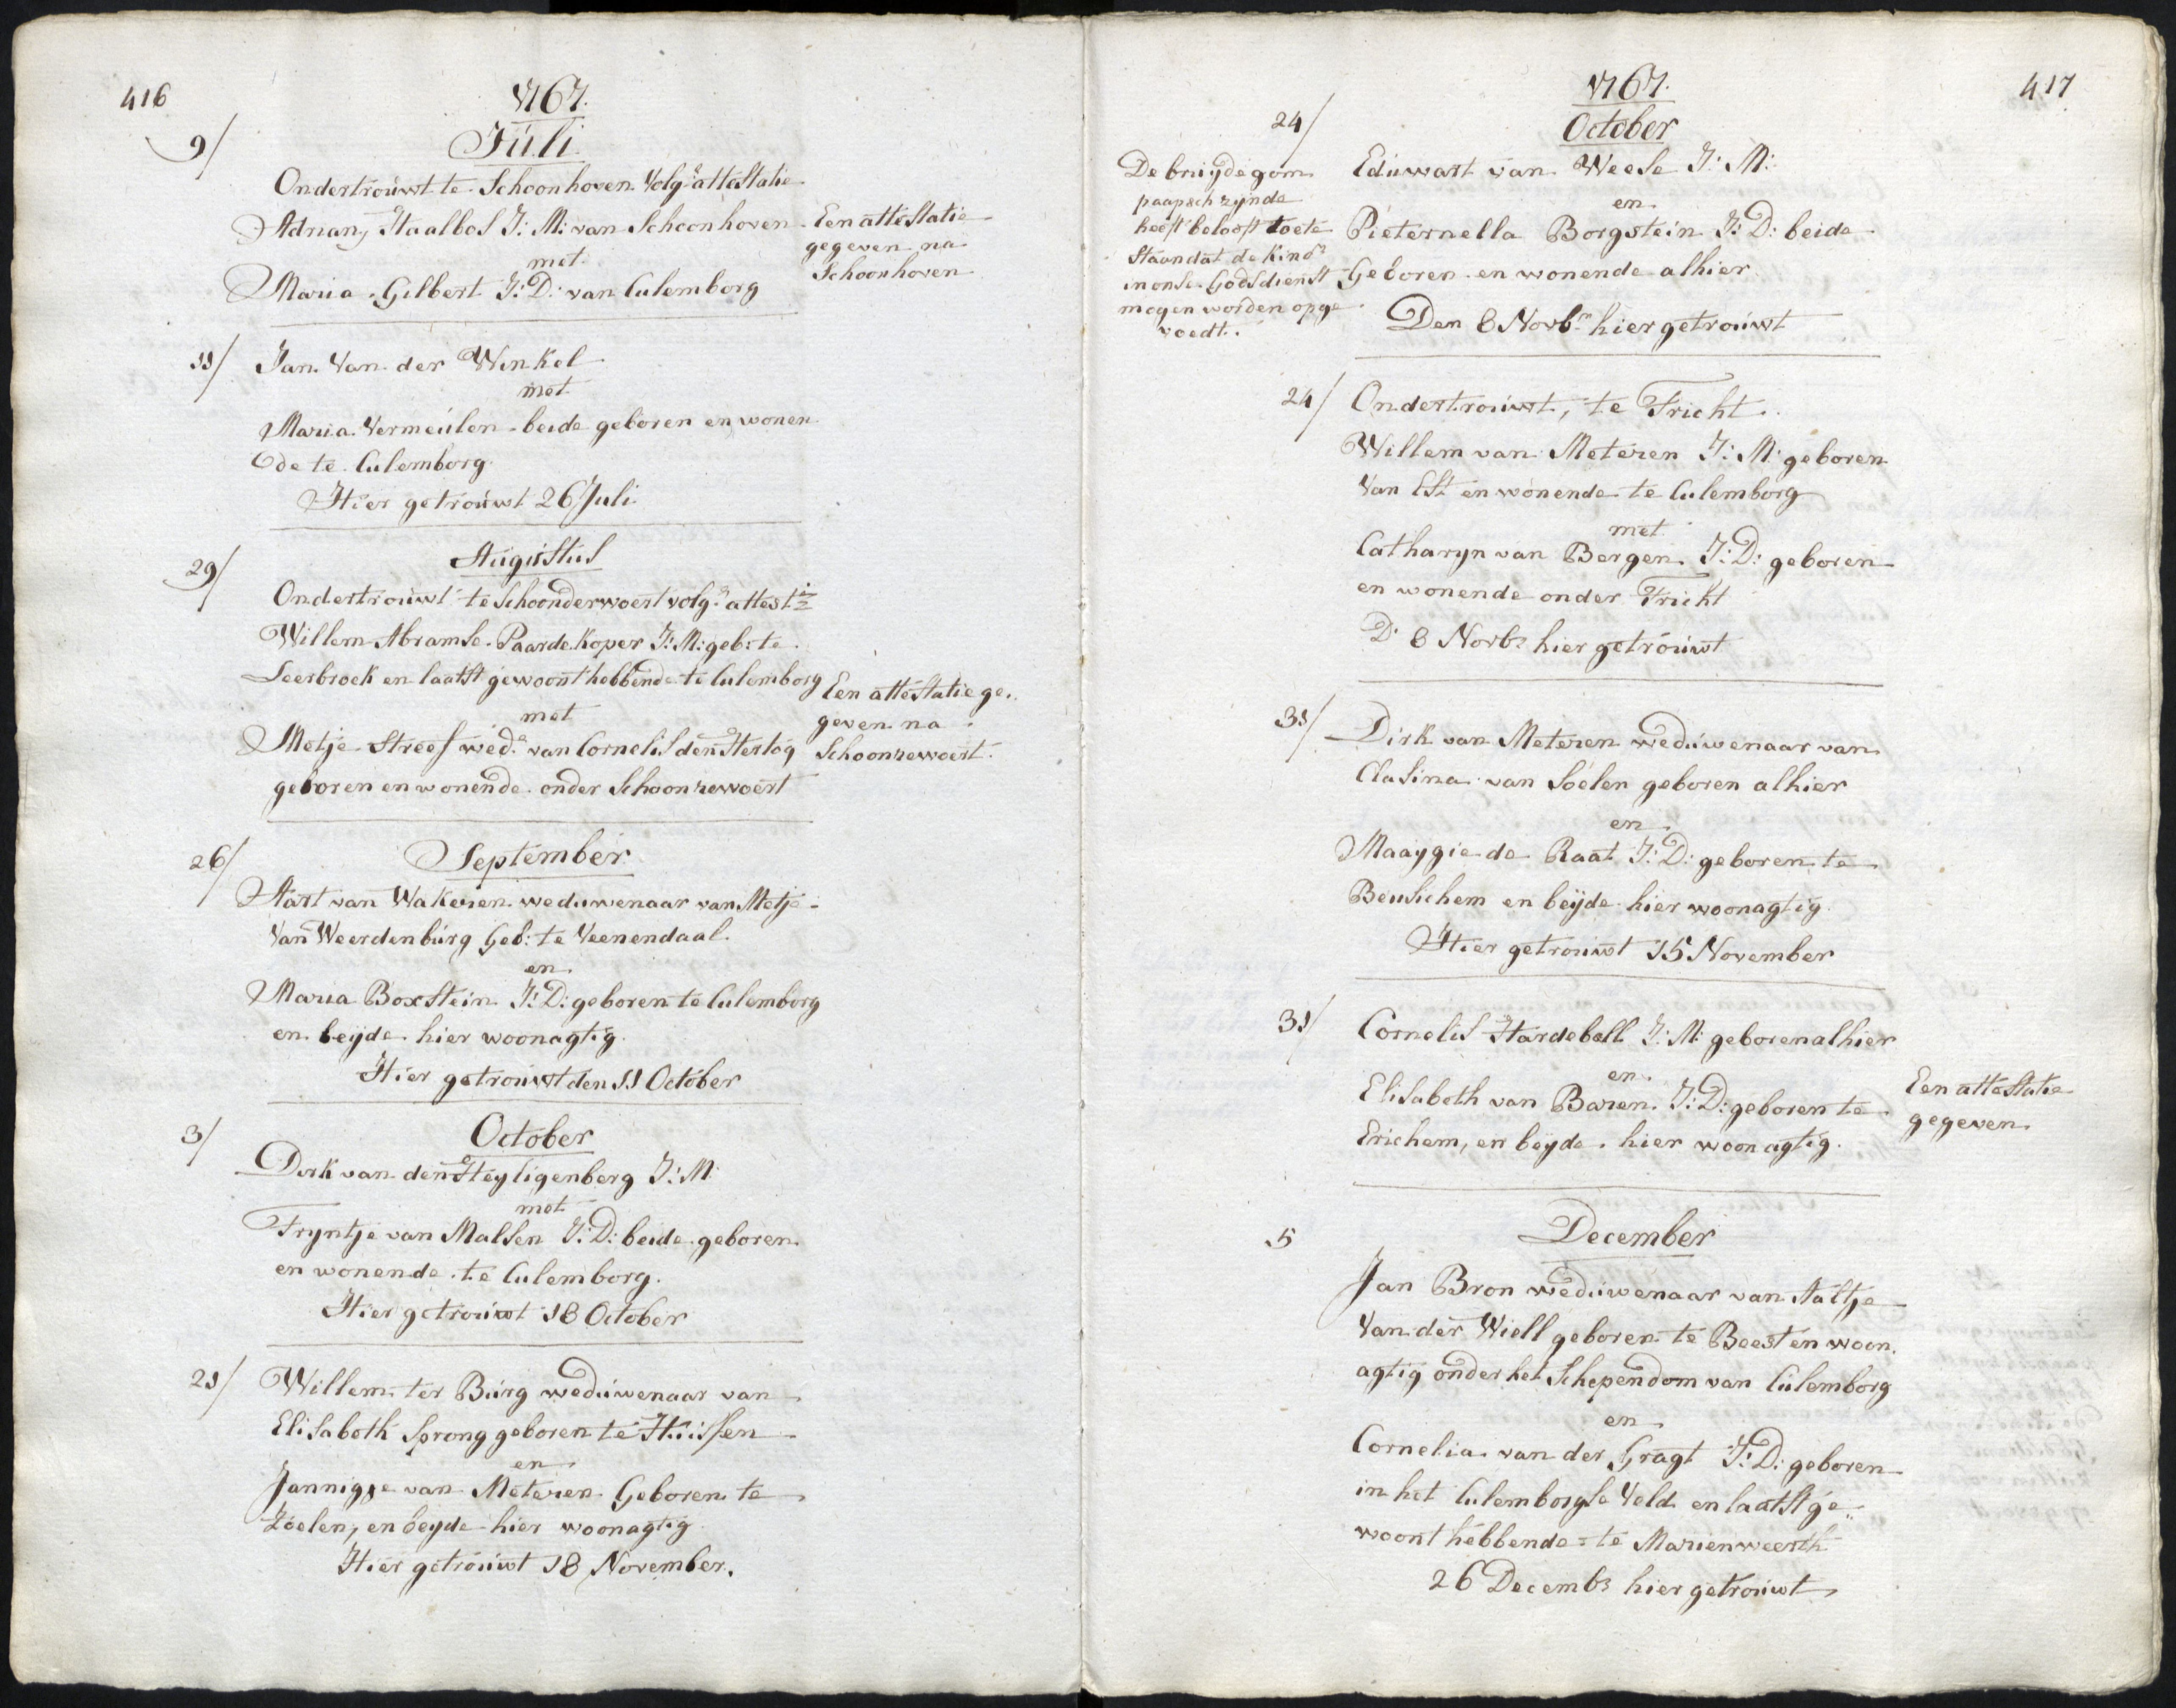 416
1767.
9/
Juli.
Ondertrouwt te Schoonhoven volg.s attestatie
Adriany Staalbos J: M: van Schoonhoven
met
Maria Gilbert J: D: van Culemborg
Een attestatie
gegeven na
Schoonhoven
11/
Jan van der Winkel
met
Maria Vermeulen beide geboren en wonen
de te Culemborg.
Hier getrouwt 26 Juli
Augustus
29/
Ondertrouwt te Schoonderwoert volg.s attest.ie
Willem Abramse Paardekoper J: M: geb: te
Leerbroek en laatst gewoont hebbende te Culemborg
met
Metje Streef wed.e van Cornelis den Hertog
geboren en wonende onder Schoonrewoert
Een attestatie ge..
geven na
Schoonrewoert.
September
26/
Aart van Wakeren weduwenaar van Metje
van Weerdenburg Geb: te Veenendaal.
en
Maria Boxstein J: D: geboren te Culemborg
en beyde hier woonagtig.
Hier getrouwt den 11 October
October
3/
Dirk van den Heyligenberg J: M:
met
Tryntje van Malsen J: D: beide geboren
en wonende te Culemborg.
Hier getrouwt 18 October
21/
Willem ter Burg weduwenaar van
Elisabeth Sprong geboren te Huissen
en
Jannigje van Meteren Geboren te
Zoelen, en beyde hier woonagtig
Hier getrouwt 18 November.
417
1767.
October
24/
De bruydegom
paapsch zynde
heeft belooft toe te
staan dat de kind.s
in onse Godsdienst
mogen worden opge
voedt.
Eduwart van Weese J: M:
en
Pieternella Borgstein J: D: beide
Geboren en wonende alhier
Den 8 Novb.r hier getrouwt
24/
Ondertrouwt, te Tricht.
Willem van Meteren J: M: geboren
van Est en wonende te Culemborg
met
Catharyn van Bergen J: D: geboren
en wonende onder Tricht
D. 8 Novb.r hier getrouwt
31/
Dirk van Meteren weduwenaar van
Clasina van Soelen geboren alhier
en
Maaygie de Raat J: D: geboren te
Beusichem en beyde hier woonagtig.
Hier getrouwt 15 November
31/
Cornelis Hardeboll J: M: geboren alhier
en
Elisabeth van Baren J: D: geboren te
Erichem, en beyde hier woonagtig.
Een attestatie
gegeven
December
5
Jan Bron weduwenaar van Aaltje
van der Wiell geboren te Beest en woon
agtig onder het Schependom van Culemborg
en
Cornelia van der Gragt J: D: geboren
in het Culemborgse Veld en laatst ge..
woont hebbende te Marienweerth
26 Decemb.r hier getrouwt